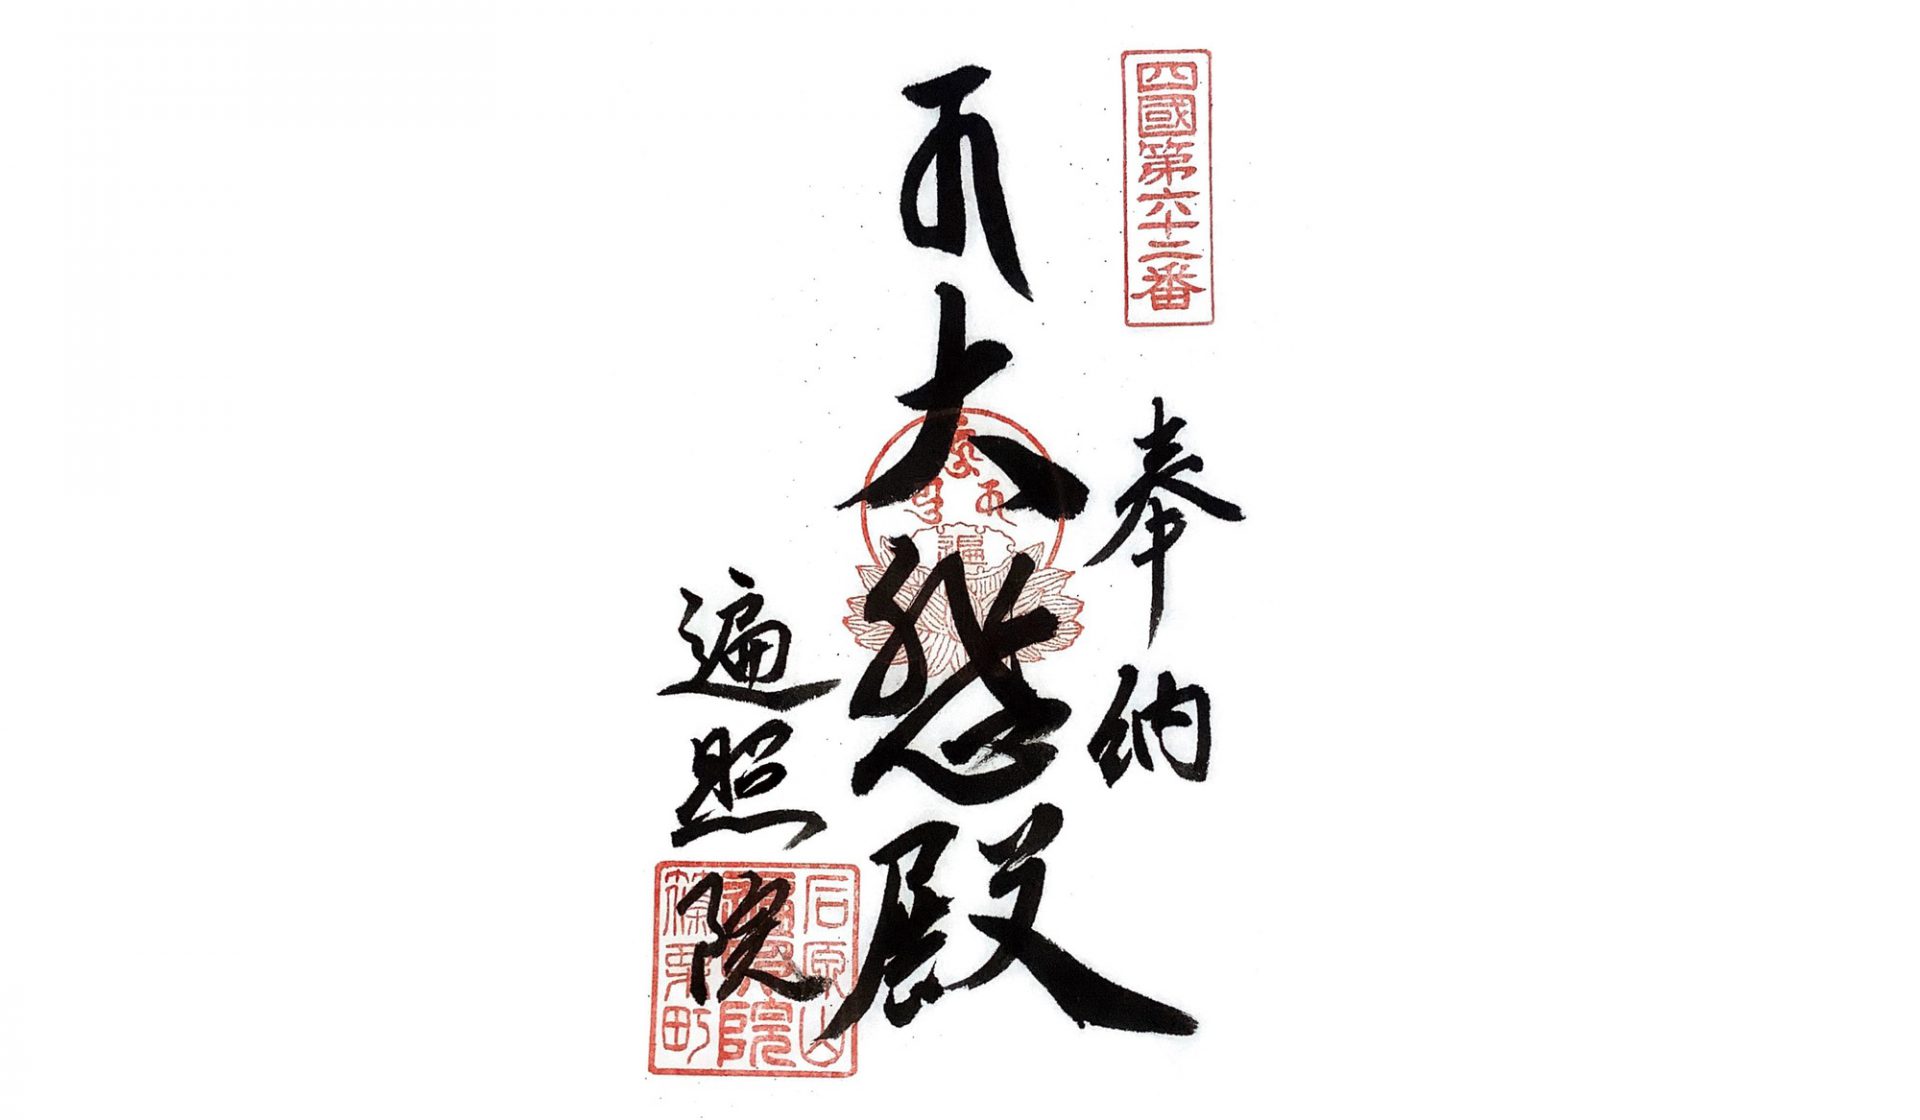 四國第六十二番
奉納
大悲殿
遍照院
石原山
遍照院
篠栗町